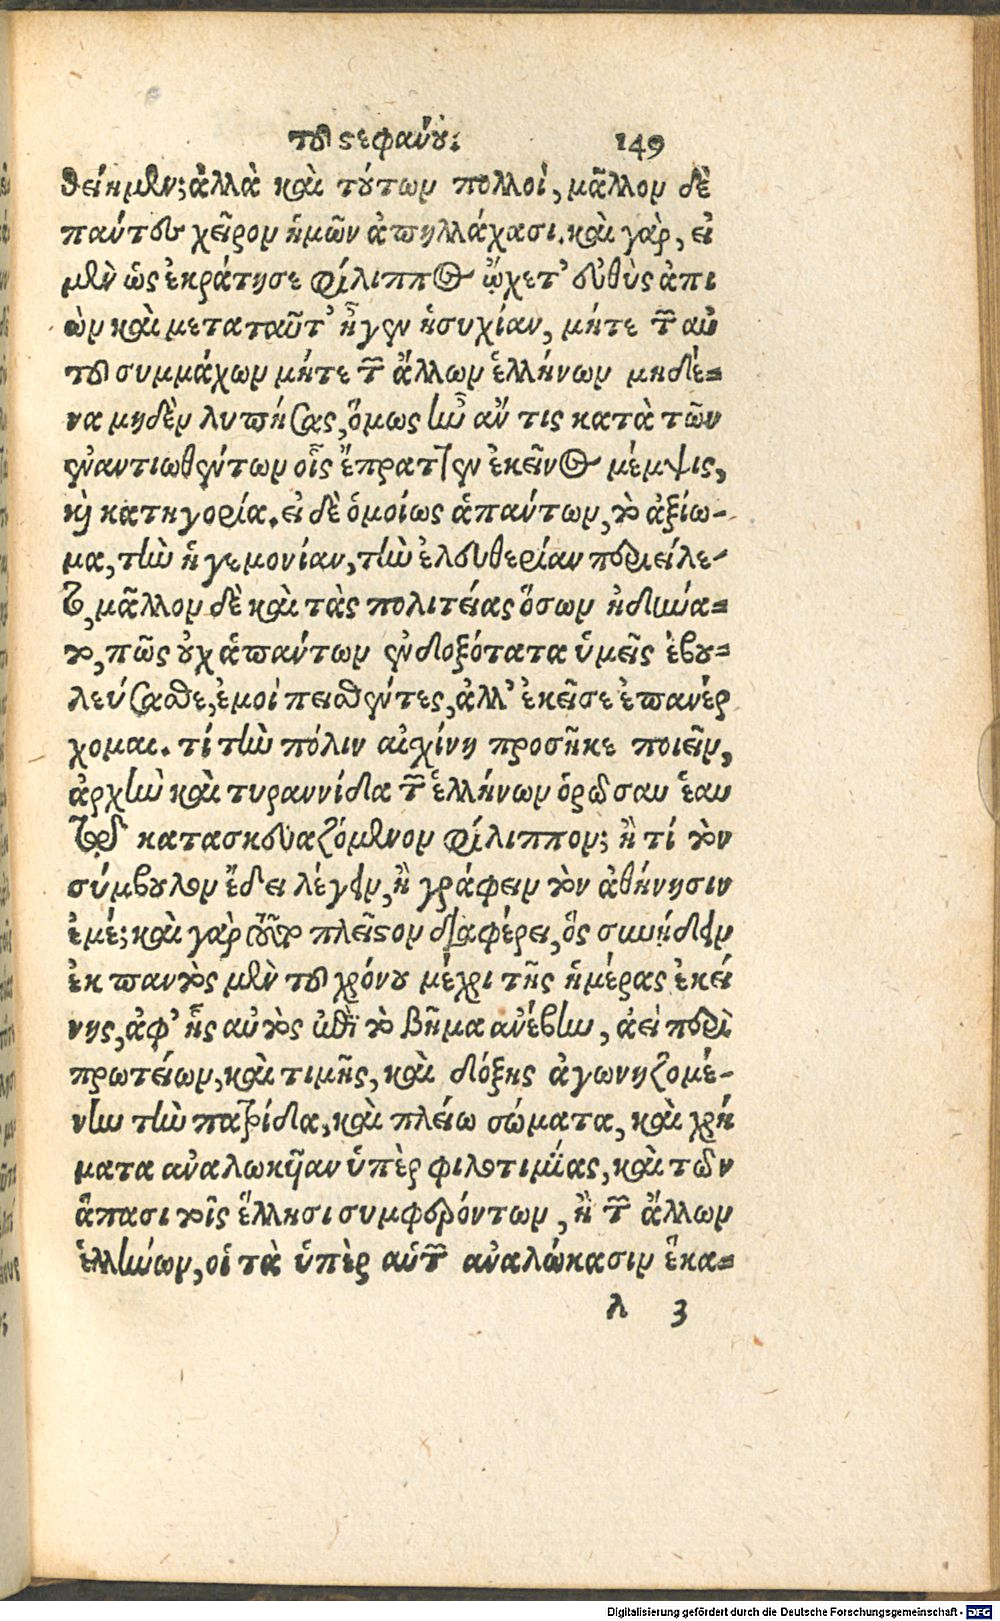 τοῦ στεφάνου. 149
θείημεν; ἀλλὰ καὶ τούτων πολλοὶ, μᾶλλον δὲ
πάντες χεῖρον ἡμῶν ἀπηλλάχασι. καὶ γὰρ, εἰ
μὲν ὡς ἐκράτησε φίλιππος ᾤχετ' εὐθὺς ἀπι
ὼν καὶ μετὰ ταῦτ' ἦγεν ἡσυχίαν, μήτε τῶν αὐ
τοῦ συμμάχων μήτε τῶν ἄλλων ἑλλήνων μηδέ-
να μηδὲν λυπήσας, ὅμως ἦν ἄν τις κατὰ τῶν
ἐναντιωθέντων οἷς ἔπραττεν ἐκεῖνος μέμψις,
καὶ κατηγορία. εἰ δὲ ὁμοίως ἁπάντων, τὸ ἀξίω-
μα, τὴν ἡγεμονίαν, τὴν ἐλευθερίαν περιείλε-
το, μᾶλλον δὲ καὶ τὰς πολιτείας ὅσων ἠδύνα-
το, πῶς οὐχ ἁπάντων ἐνδοξότατα ὑμεῖς ἐβου-
λεύσασθε, ἐμοὶ πεισθέντες, ἀλλ' ἐκεῖσε ἐπανέρ
χομαι. τί τὴν πόλιν αἰσχίνη προσῆκε ποιεῖν,
ἀρχὴν καὶ τυραννίδα τῶν ἑλλήνων ὁρῶσαν ἑαυ
τῷ κατασκευαζόμενον φίλιππον; ἢ τί τὸν
σύμβουλον ἔδει λέγειν, ἢ γράφειν τὸν ἀθήνησιν
ἐμέ; καὶ γὰρ τοῦτο πλεῖστον διαφέρει, ὃς συνῄδειν
ἐκ παντὸς μὲν τοῦ χρόνου μέχρι τῆς ἡμέρας ἐκεί
νης, ἀφ' ἧς αὐτὸς ἐπὶ τὸ βῆμα ἀνέβην, ἀεὶ περὶ
πρωτείων, καὶ τιμῆς, καὶ δόξης ἀγωνιζομέ-
νην τὴν πατρίδα, καὶ πλείω σώματα, καὶ χρή
ματα ἀναλωκυῖαν ὑπὲρ φιλοτιμίας, καὶ τῶν
ἅπασι τοῖς ἕλλησι συμφερόντων, ἢ τῶν ἄλλων
ἑλλήνων, οἱ τὰ ὑπὲρ αὑτῶν ἀναλώκασιν ἕκα-
λ 3
Digitalisierung gefördert durch die Deutsche Forschungsgemeinschaft - DFG